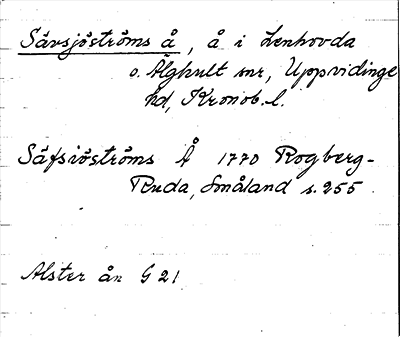 Sävsjöströms å, å i Lenhovda
o. Älghult snr, Uppvidinge
hd, Kronob. l.
Säfsiöströms Å 1770 Rogberg-
Ruda, Småland s. 255.
Alster ån G 21